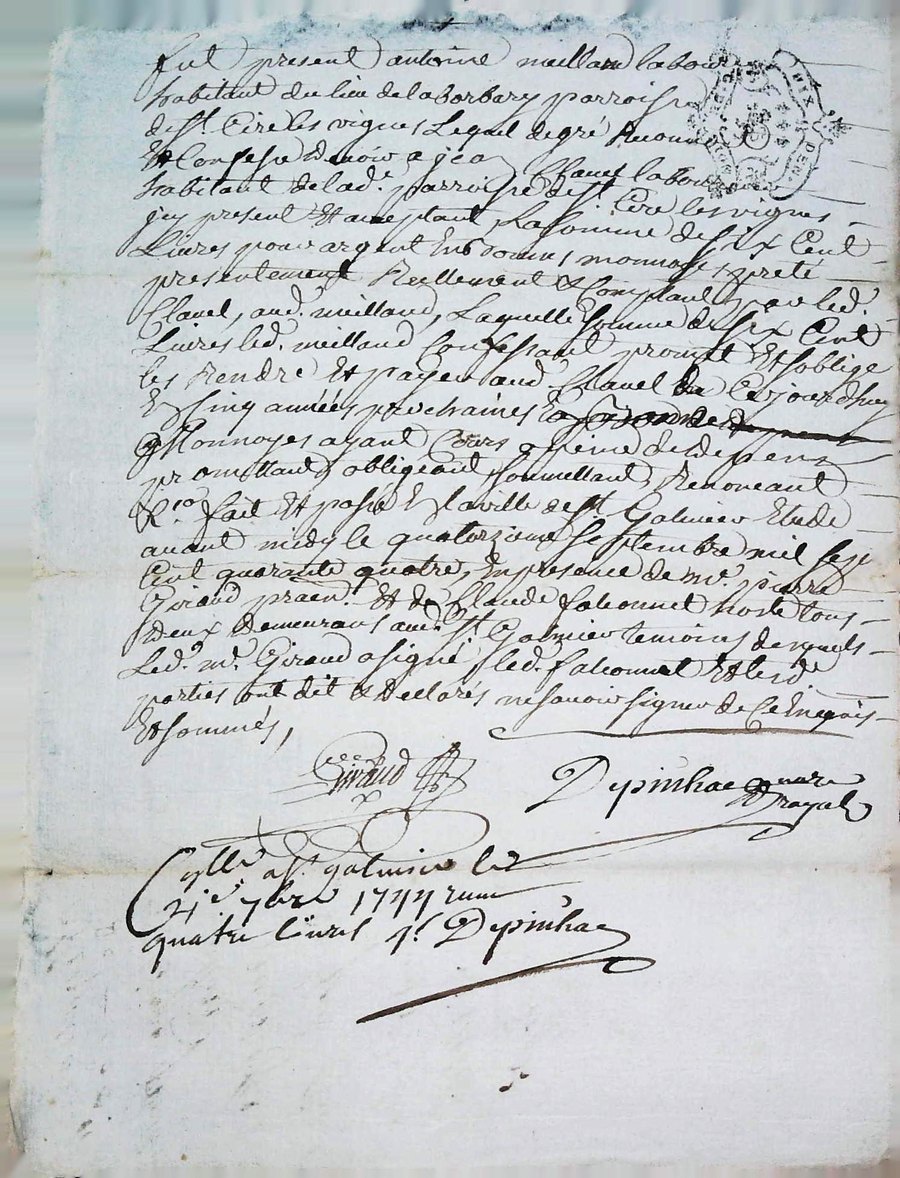 fut present antoine meilland labour
habitant du lieu de laborbary parroisse
de St. Cire les vignes Lequel de gré Reconu
Et Confessé devoir a jean Clavel labour
habitant de lad.e parroisse de St. Cire les vignes
jcy present Et aceptant La somme de six Cent
Livres pour argent En bonnes monnoyes preté
presentement Reellement & Comptant par led.
Clavel, aud. meilland, Laquelle somme de six Cent
Livres led. meilland Confessant promet Et soblige
les Rendre Et payer aud. Clavel de Cejourdhuy
En Cinq années prochaines
Monnoyes ayant Cours a peine de depens
promettant obligeant soumettant Renonceant
fait Et passé En la ville de St. Galmier Etude
avant midy le quatorzieme septembre mil sept
Cent quarante quatre, En presence de me. pierre
Giraud praen. Et de Claude falconnet hoste tous
deux demeurans aud. St Galmier temoins desquels
Led. me. Giraud a signé, led. falconnet Et lesd.
parties ont dit & declarés ne savoir signer de Ce Enquis
Et sommés,
Giraud
Depinhac nore
Royal
Cllé a St. galmier le
21e 7bre 1744 recu
quatre livres 4s Depinhac
DIX DEN